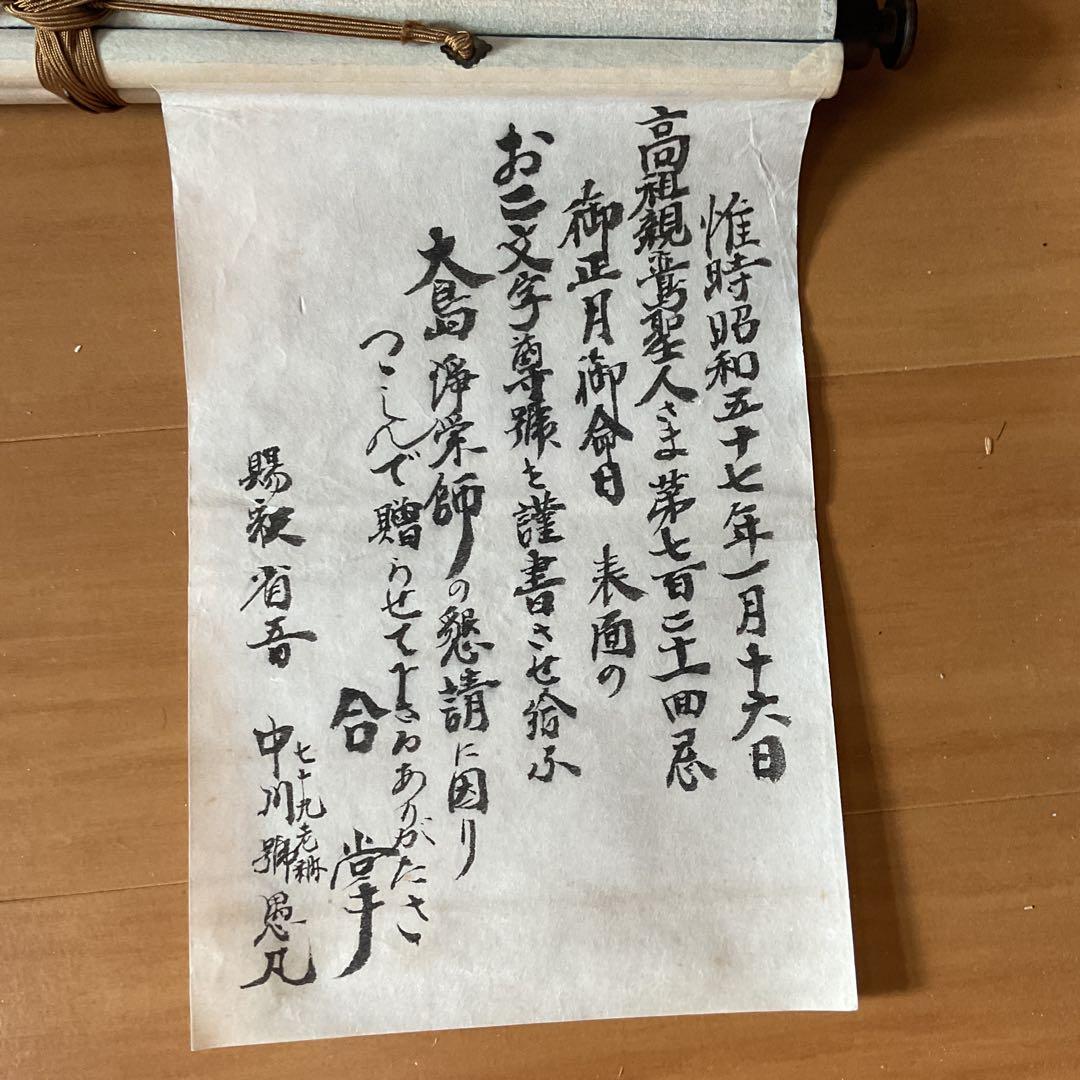 惟時昭和五十七年一月十六日
高祖親鸞聖人さま第七百二十一回忌
御正月御命日 表面の
お二文字尊號を謹書させ給ふ
大島淨栄師の懇請に因り
つつしんで贈らせて下さるありがたさ
合掌
賜釈省吾
七十九老衲
中川號愚凡